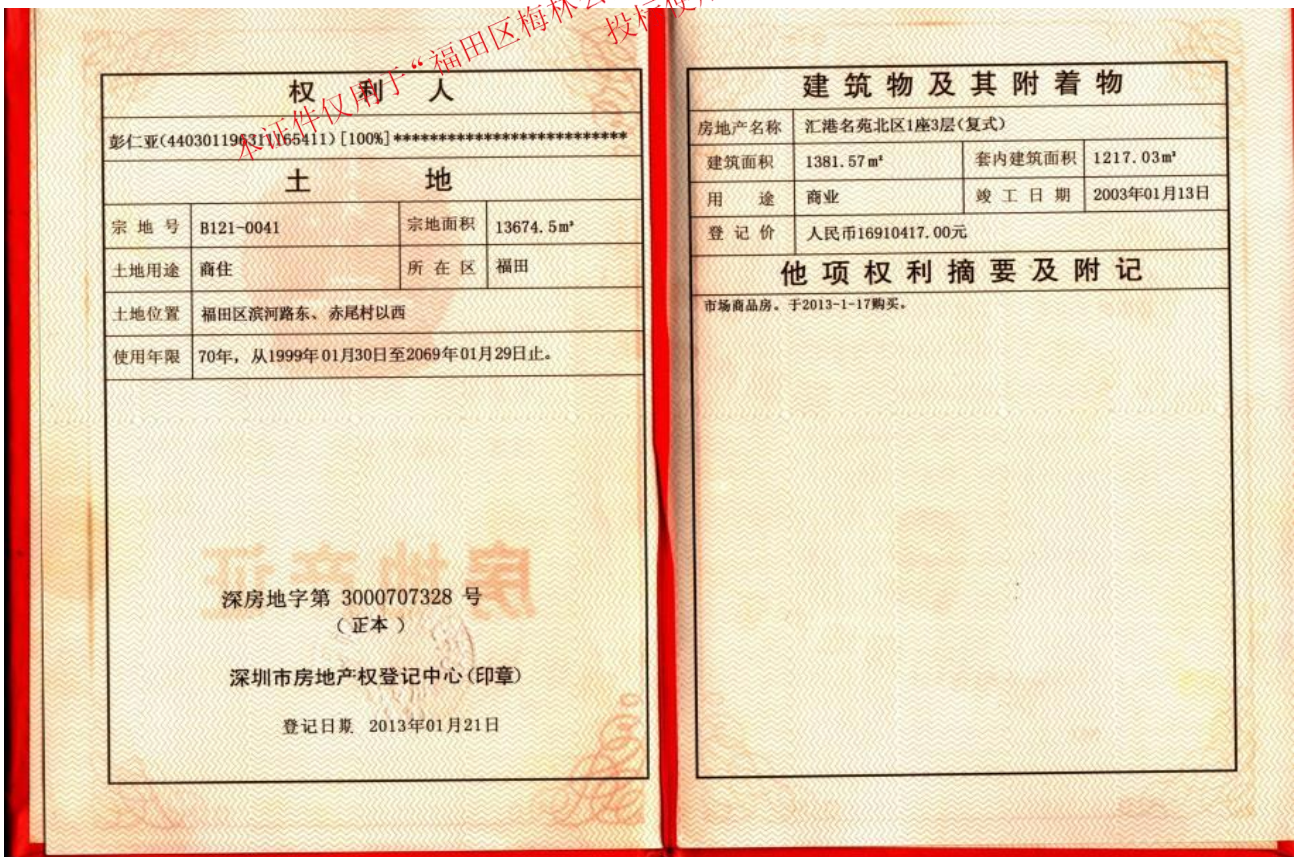 本证件仅用于“福田区梅林公
投标使用
权利人
彭仁亚(440301196311165411)[100%]**************************
土地
宗地号 B121-0041 宗地面积 13674.5m²
土地用途 商住 所在区 福田
土地位置 福田区滨河路东、赤尾村以西
使用年限 70年，从1999年01月30日至2069年01月29日止。
房地产证
深房地字第 3000707328 号
（正本）
深圳市房地产权登记中心(印章)
登记日期 2013年01月21日
建筑物及其附着物
房地产名称 汇港名苑北区1座3层(复式)
建筑面积 1381.57m² 套内建筑面积 1217.03m²
用途 商业 竣工日期 2003年01月13日
登记价 人民币16910417.00元
他项权利摘要及附记
市场商品房。于2013-1-17购买。